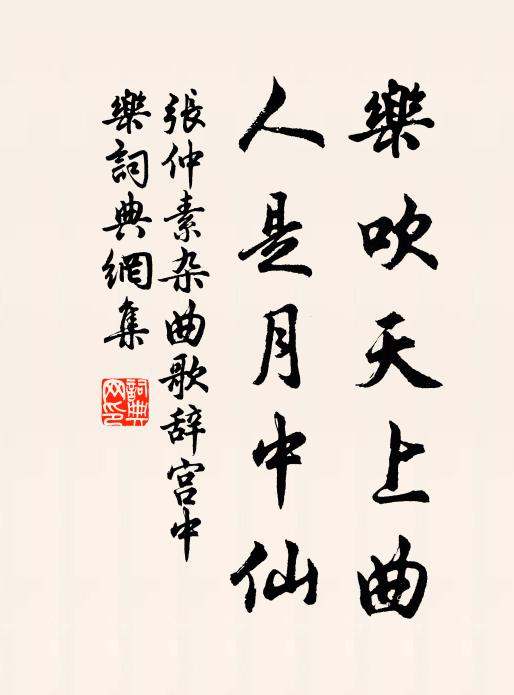 樂吹天上曲
人是月中仙
張仲素杂曲歌辞宫中
樂詞典網集
詞典
网印